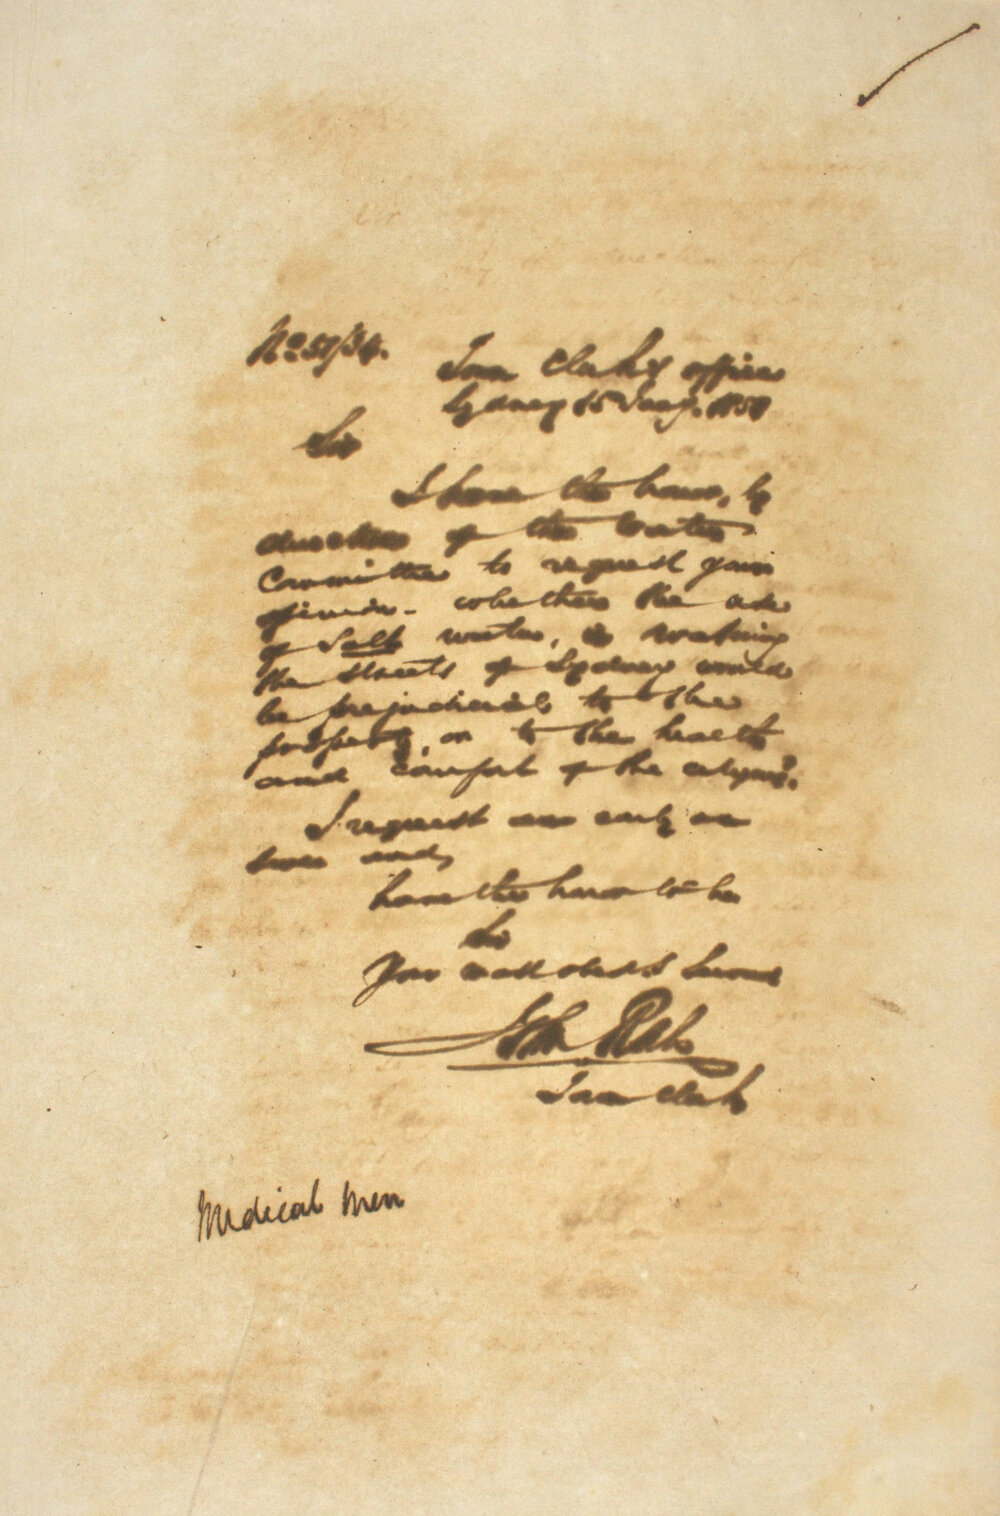 No 57/34.
Town Clerk's office
Sydney 15 Jany. 1857
Sir
I have the honor, by
direction of the Water
Committee to request your
opinion - whether the use
of Salt water, in watering
the streets of Sydney would
be prejudicial to the
property, or to the health
and comfort of the citizens?
I request an early an
swer and,
have the honor to be
Sir
Your most obedt Servant
John Rae
Town Clerk
Medical Men